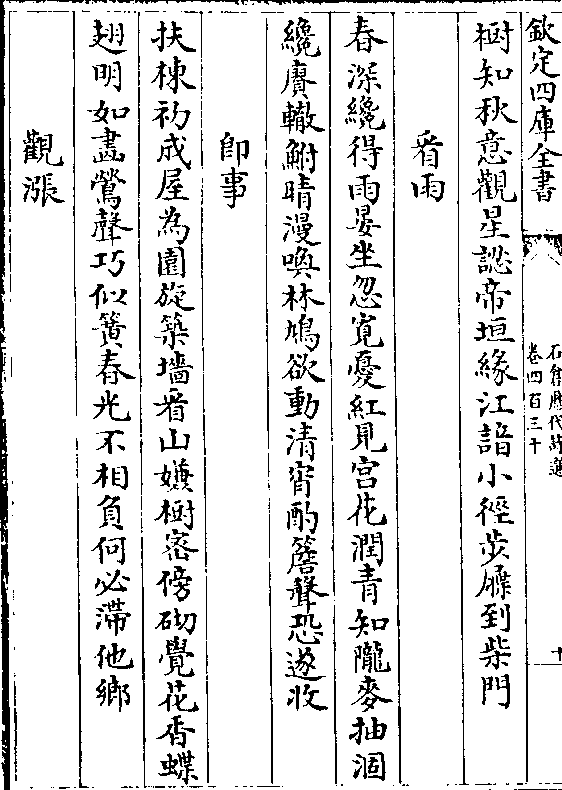 欽定四庫全書
石倉歷代詩選
卷四百三十
十
樹知秋意觀星認帝垣緣江諳小徑步屧到柴門
看雨
春深纔得雨晏坐忽寛憂紅見宫花潤青知隴麥抽涸
纔賡轍鮒晴漫喚林鳩欲動清宵酌簷聲恐遂收
即事
扶棟初成屋為園旋築墻看山嫌樹密傍砌覺花香蝶
翅明如畫鶯聲巧似簧春光不相負何必滯他鄉
觀漲